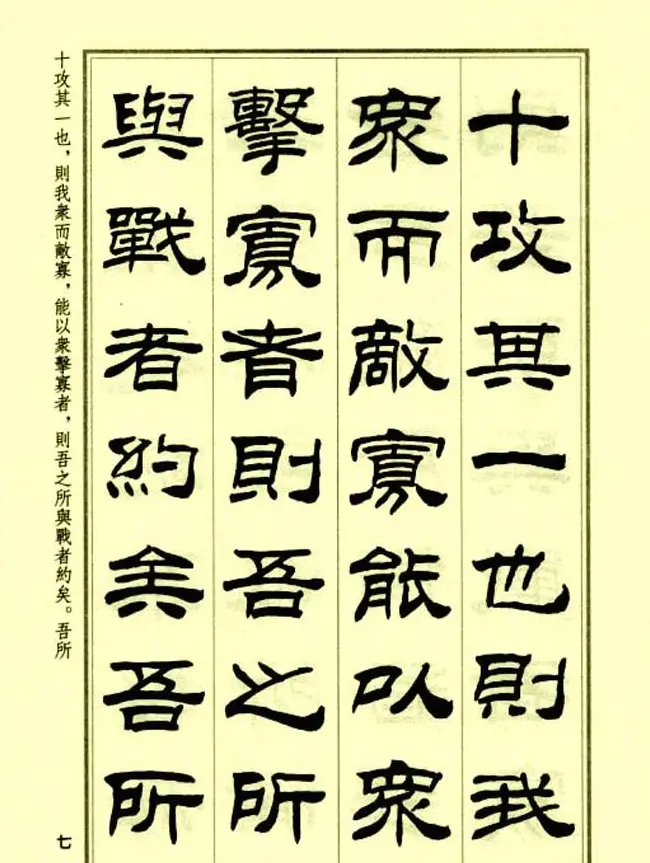 十攻其一也則我
衆而敵寡能以衆
擊寡者則吾之所
與戰者約矣吾所
十攻其一也，則我衆而敵寡，能以衆擊寡者，則吾之所與戰者約矣。吾所
七